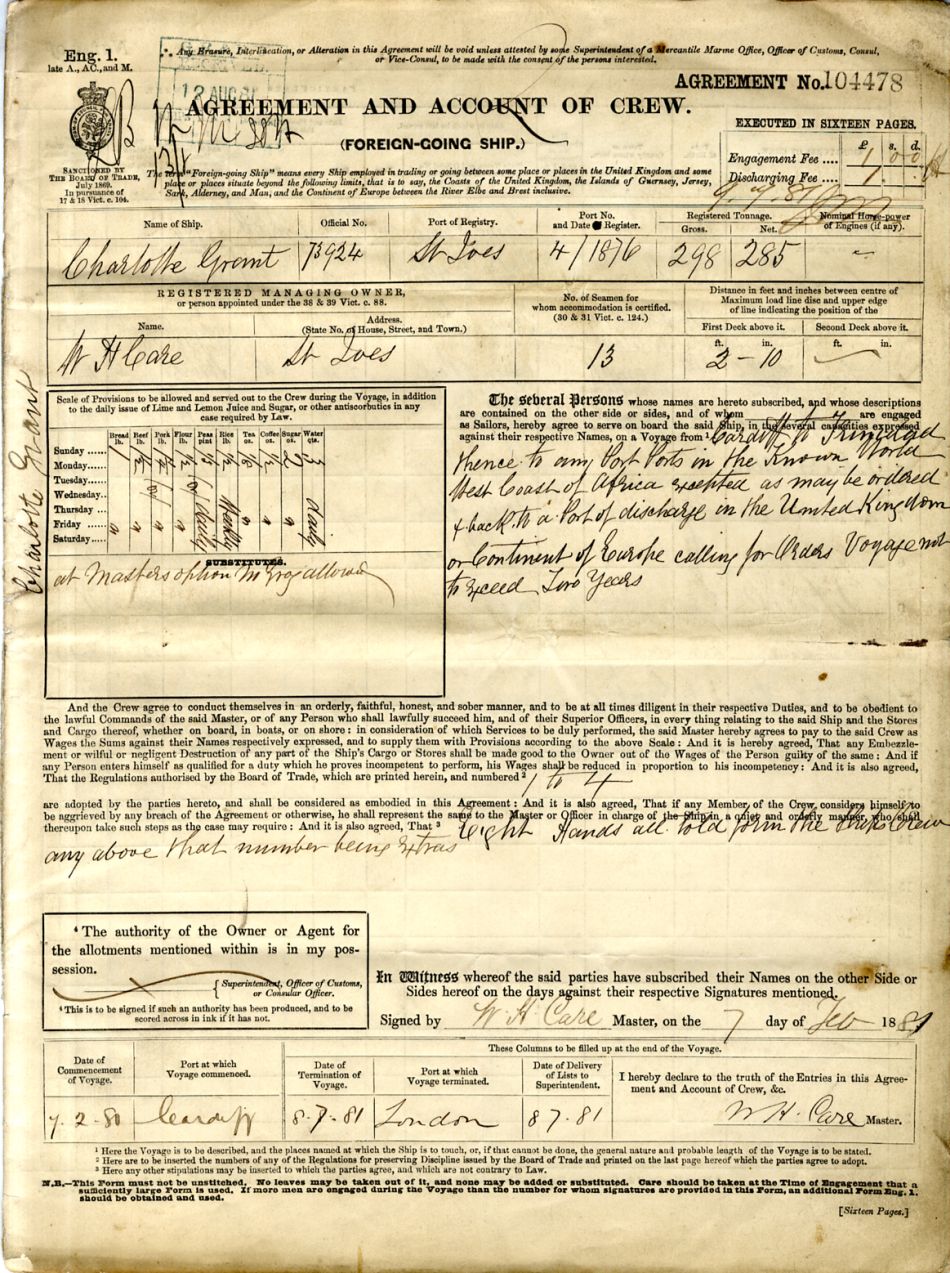 Eng. 1.
late A., AC., and M.
*** Any Erasure, Interlineation, or Alteration in this Agreement will be void unless attested by some Superintendent of a Mercantile Marine Office, Officer of Customs, Consul,
or Vice-Consul, to be made with the consent of the persons interested.
AGREEMENT No. 104478
AGREEMENT AND ACCOUNT OF CREW.
(FOREIGN-GOING SHIP.)
EXECUTED IN SIXTEEN PAGES.
£ s. d.
Engagement Fee .... 1
Discharging Fee .... 1
SANCTIONED BY
THE BOARD OF TRADE,
July 1869.
In pursuance of
17 & 18 Vict. c. 104.
The term "Foreign-going Ship" means every Ship employed in trading or going between some place or places in the United Kingdom and some
place or places situate beyond the following limits, that is to say, the Coasts of the United Kingdom, the Islands of Guernsey, Jersey,
Sark, Alderney, and Man, and the Continent of Europe between the River Elbe and Brest inclusive.
Name of Ship. Official No. Port of Registry. Port No. and Date of Register. Registered Tonnage. Gross. Net. Nominal Horse-power of Engines (if any).
Charlotte Grant 73924 St Ives 4/1876 298 285
REGISTERED MANAGING OWNER,
or person appointed under the 38 & 39 Vict. c. 88.
Name. Address. (State No. of House, Street, and Town.)
No. of Seamen for
whom accommodation is certified.
(30 & 31 Vict. c. 124.)
Distance in feet and inches between centre of
Maximum load line disc and upper edge
of line indicating the position of the
First Deck above it. Second Deck above it.
ft. in. ft. in.
W H Care St Ives 13 2 - 10
Charlotte Grant
Scale of Provisions to be allowed and served out to the Crew during the Voyage, in addition
to the daily issue of Lime and Lemon Juice and Sugar, or other antiscorbutics in any
case required by Law.
Bread lb. Beef lb. Pork lb. Flour lb. Peas pint Rice lb. Tea oz. Coffee oz. Sugar oz. Water qts.
Sunday ......
Monday ......
Tuesday ......
Wednesday ......
Thursday ......
Friday ......
Saturday ......
daily Weekly daily
SUBSTITUTES.
at Masters option No Grog allowed
The several Persons whose names are hereto subscribed, and whose descriptions
are contained on the other side or sides, and of whom are engaged
as Sailors, hereby agree to serve on board the said Ship, in the several capacities expressed
against their respective Names, on a Voyage from Cardiff to Trinidad
thence to any Port Ports in the Known World
West Coast of Africa excepted as may be ordered
& back to a Port of discharge in the United Kingdom
or Continent of Europe calling for Orders Voyage not
to exceed Two Years
And the Crew agree to conduct themselves in an orderly, faithful, honest, and sober manner, and to be at all times diligent in their respective Duties, and to be obedient to
the lawful Commands of the said Master, or of any Person who shall lawfully succeed him, and of their Superior Officers, in every thing relating to the said Ship and the Stores
and Cargo thereof, whether on board, in boats, or on shore: in consideration of which Services to be duly performed, the said Master hereby agrees to pay to the said Crew as
Wages the Sums against their Names respectively expressed, and to supply them with Provisions according to the above Scale: And it is hereby agreed, That any Embezzle-
ment or wilful or negligent Destruction of any part of the Ship's Cargo or Stores shall be made good to the Owner out of the Wages of the Person guilty of the same: And if
any Person enters himself as qualified for a duty which he proves incompetent to perform, his Wages shall be reduced in proportion to his incompetency: And it is also agreed,
That the Regulations authorised by the Board of Trade, which are printed herein, and numbered ² 1 to 4
are adopted by the parties hereto, and shall be considered as embodied in this Agreement: And it is also agreed, That if any Member of the Crew considers himself to
be aggrieved by any breach of the Agreement or otherwise, he shall represent the same to the Master or Officer in charge of the Ship in a quiet and orderly manner, who shall
thereupon take such steps as the case may require: And it is also agreed, That ³ Eight Hands all told form the Ships Crew
any above that number being Extras
⁴ The authority of the Owner or Agent for
the allotments mentioned within is in my pos-
session.
Superintendent, Officer of Customs,
or Consular Officer.
⁴ This is to be signed if such an authority has been produced, and to be
scored across in ink if it has not.
In Witness whereof the said parties have subscribed their Names on the other Side or
Sides hereof on the days against their respective Signatures mentioned.
Signed by W. H. Care Master, on the 7 day of Feb 1881
These Columns to be filled up at the end of the Voyage.
Date of Commencement of Voyage. Port at which Voyage commenced. Date of Termination of Voyage. Port at which Voyage terminated. Date of Delivery of Lists to Superintendent.
I hereby declare to the truth of the Entries in this Agree-
ment and Account of Crew, &c.
7. 2. 80 Cardiff 8-7-81 London 8 7. 81 W. H. Care Master.
¹ Here the Voyage is to be described, and the places named at which the Ship is to touch, or, if that cannot be done, the general nature and probable length of the Voyage is to be stated.
² Here are to be inserted the numbers of any of the Regulations for preserving Discipline issued by the Board of Trade and printed on the last page hereof which the parties agree to adopt.
³ Here any other stipulations may be inserted to which the parties agree, and which are not contrary to Law.
N.B.—This Form must not be unstitched. No leaves may be taken out of it, and none may be added or substituted. Care should be taken at the Time of Engagement that a
sufficiently large Form is used. If more men are engaged during the Voyage than the number for whom signatures are provided in this Form, an additional Form Eng. 1.
should be obtained and used.
[Sixteen Pages.]